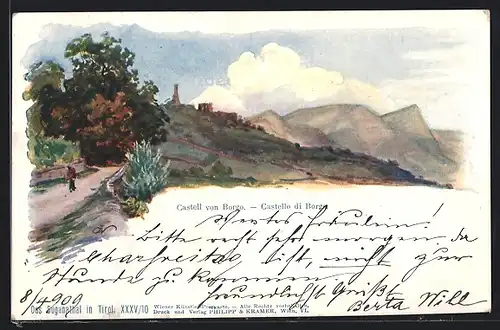 Castell von Borgo. — Castello di Borgo.
Wertes Fräulein!
Bitte recht sehr morgen, da
Charfreitag ist, nicht zur
Stunde zu kommen
freundlichst Grüßt
Berta Will
8/4 909
Das Suganathal in Tirol. XXXV/10
Wiener Künstler-Postkarte. — Alle Rechte vorbehalten.
Druck und Verlag PHILIPP & KRAMER, Wien, VI.